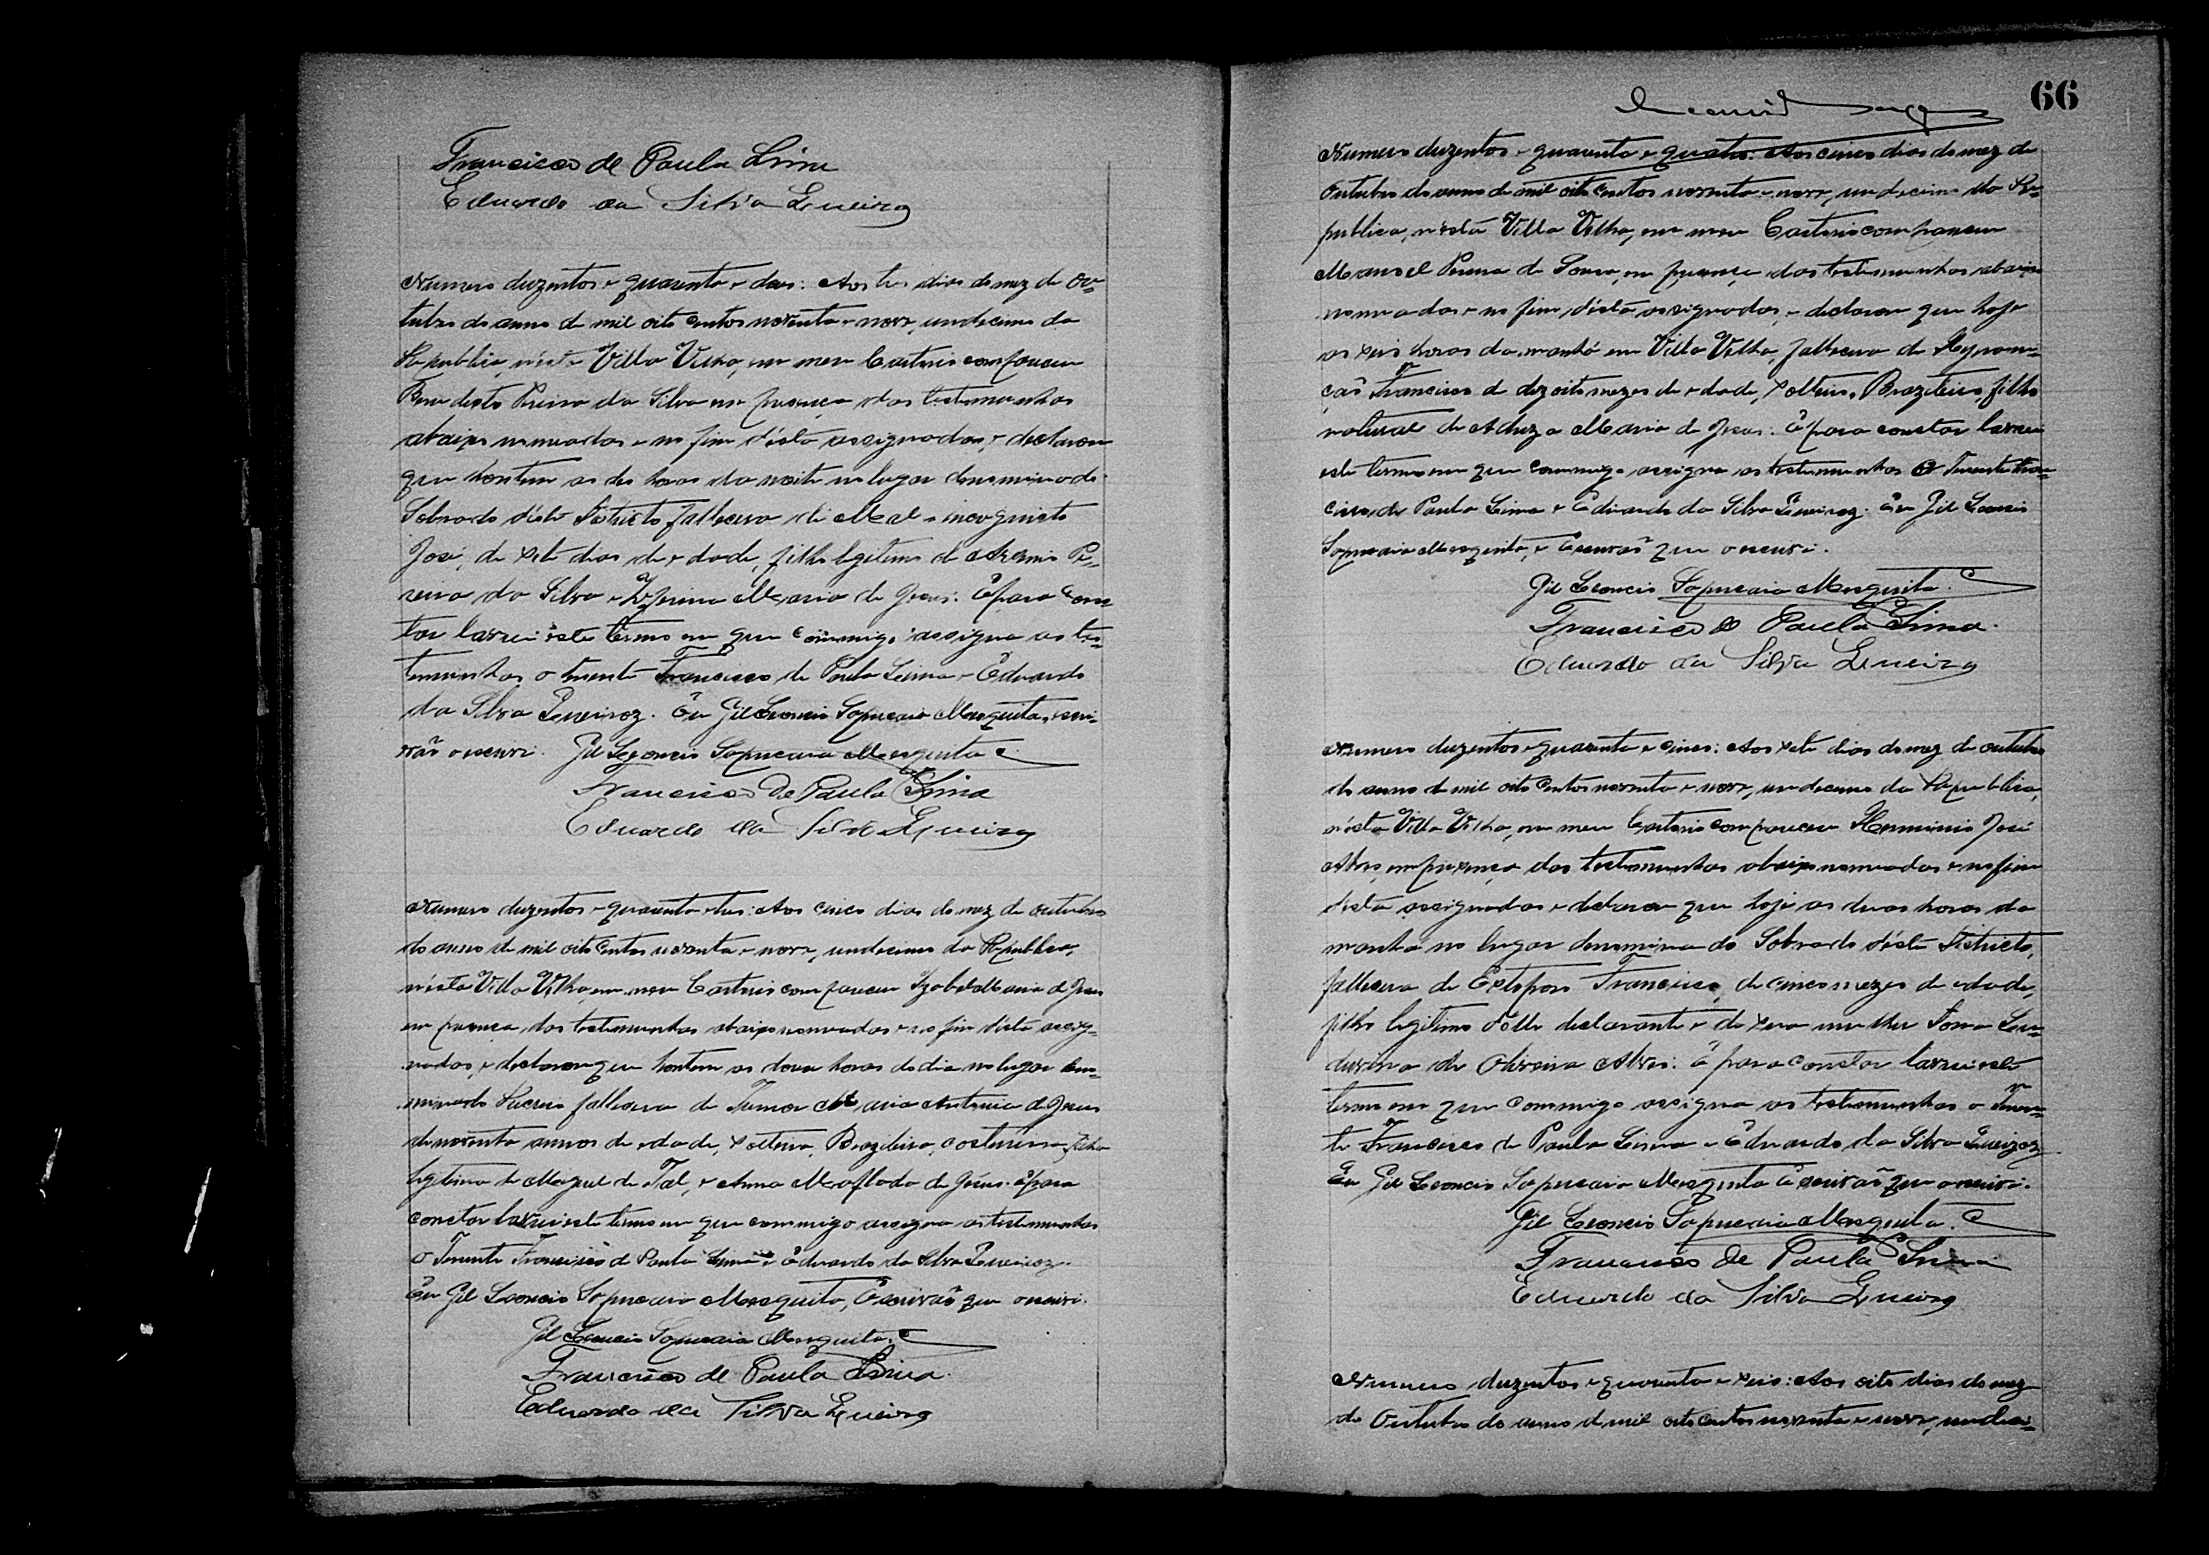 Francisco de Paula Lima
Eduardo da Silva Queiroz
Numero duzentos e quarenta e dous: Aos tres dias do mez de Ou-
tubro do anno de mil oito centos noventa e nove, undecimo da
Republica, nésta Villa Velha, em meu Cartorio compareceu
Benedicto Pereira da Silva em presença das testemunhas
abaixo nomeadas e no fim désta assignadas, e declarou
que hontem as des horas da noite no lugar denominado
Sobrado déste Districto fallecera de Mal incognito
José, de sete dias de edade, filho legitimo de Pe-
reira da Silva e Zeferina Maria de Jesus. E para cons-
tar lavrei éste termo em que commigo assigna as tes-
temunhas o tenente Francisco de Paula Lima e Eduardo
da Silva Queiroz. Eu Gil Leoncio Sapucaia Mesquita, escri-
vão o escrevi. Gil Leoncio Sapucaia Mesquita
Francisco de Paula Lima
Eduardo da Silva Queiroz
Numero duzentos e quarenta e tres: Aos cinco dias do mez de outubro
do anno de mil oito centos noventa e nove, undecimo da Republica,
nésta Villa Velha, em meu Cartorio compareceu Izabel Maria de Jesus
em presença das testemunhas abaixo nomeadas e no fim désta assig-
nadas, e declarou que hontem as doze horas do dia no lugar deno-
minado fallecera de Tumor Maria Antonia de Jesus
de noventa annos de edade, solteira, Brazileira, costureira, filha
legitima de Miguel de Tal, e Anna Mafalda de Jesus. E para
constar lavrei este termo em que commigo assigna as testemunhas
o Tenente Francisco de Paula Lima e Eduardo da Silva Queiroz.
Eu Gil Leoncio Sapucaia Mesquita, Escrivão que o escrevi.
Gil Leoncio Sapucaia Mesquita.
Francisco de Paula Lima
Eduardo da Silva Queiroz
66
Numero duzentos e quarenta e quatro: Aos cinco dias do mez de
Outubro do anno de mil oito centos noventa e nove, undecimo da Re-
publica, nésta Villa Velha, em meu Cartorio compareceu
Manoel Pereira de Souza, em presença das testemunhas abaixo
nomeadas e no fim désta assignadas, e declarou que hoje
as seis horas da manhã em Villa Velha, fallecera de
Francisco de dezoito mezes de edade, solteiro, Brazileiro, filho
natural de Maria de Jesus. E para constar lavrei
este termo em que commigo assigna as testemunhas O Tenente Fran-
cisco de Paula Lima e Eduardo da Silva Queiroz. Eu Gil Leoncio
Sapucaia Mesquita, Escrivão que o escrevi.
Gil Leoncio Sapucaia Mesquita.
Francisco de Paula Lima.
Eduardo da Silva Queiroz
Numero duzentos e quarenta e cinco: Aos sete dias do mez de outubro
do anno de mil oito centos noventa e nove, undecimo da Republica,
nésta Villa Velha, em meu Cartorio compareceu Herminio José
Alves, em presença das testemunhas abaixo nomeadas e no fim
désta assignadas e declarou que hoje as duas horas da
manhã no lugar denominado Sobrado déste Districto,
fallecera de Francisco, de cinco mezes de edade,
filho legitimo délle declarante e de sua mulher Dona Lau-
durina de Oliveira Alves. E para constar lavrei este
termo em que commigo assigna as testemunhas o Tenen-
te Francisco de Paula Lima e Eduardo da Silva Queiroz.
Eu Gil Leoncio Sapucaia Mesquita Escrivão que o escrevi.
Gil Leoncio Sapucaia Mesquita.
Francisco de Paula Lima
Eduardo da Silva Queiroz
Numero duzentos e quarenta e seis: Aos oito dias do mez
de Outubro do anno de mil oito centos noventa e nove, undeci-